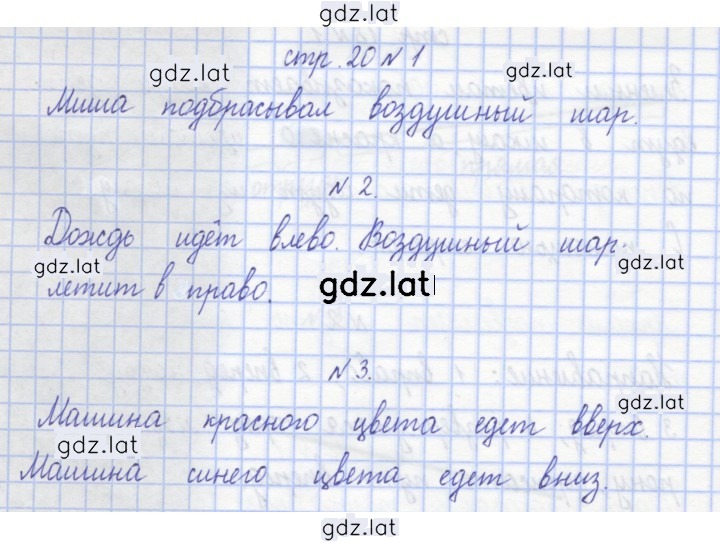 gdz.lat
стр. 20 № 1
gdz.lat gdz.lat
Миша подбрасывал воздушный шар.
№ 2.
Дождь идёт влево. Воздушный шар
gdz.lat gdz.lat
летит в право.
gdz.lat
№ 3.
gdz.lat
Машина красного цвета едет вверх.
gdz.lat
Машина синего цвета едет вниз.
gdz.lat